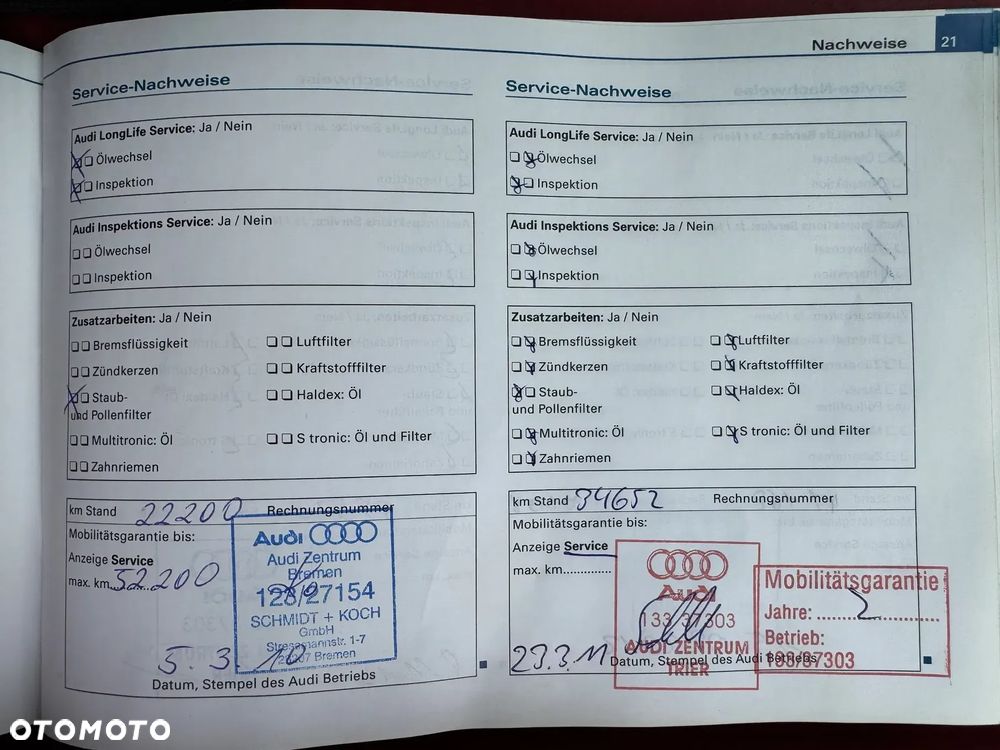 Nachweise 21
Service-Nachweise
Audi LongLife Service: Ja / Nein
Ölwechsel
Inspektion
Audi Inspektions Service: Ja / Nein
Ölwechsel
Inspektion
Zusatzarbeiten: Ja / Nein
Bremsflüssigkeit Luftfilter
Zündkerzen Kraftstofffilter
Staub- Haldex: Öl
und Pollenfilter
Multitronic: Öl S tronic: Öl und Filter
Zahnriemen
km Stand 22200 Rechnungsnummer
Mobilitätsgarantie bis:
Anzeige Service
max. km 52200
Audi
Audi Zentrum
Bremen
128/27154
SCHMIDT + KOCH
GmbH
Stresemannstr. 1-7
28207 Bremen
5.3.10
Datum, Stempel des Audi Betriebs
Service-Nachweise
Audi LongLife Service: Ja / Nein
Ölwechsel
Inspektion
Audi Inspektions Service: Ja / Nein
Ölwechsel
Inspektion
Zusatzarbeiten: Ja / Nein
Bremsflüssigkeit Luftfilter
Zündkerzen Kraftstofffilter
Staub- Haldex: Öl
und Pollenfilter
Multitronic: Öl S tronic: Öl und Filter
Zahnriemen
km Stand 34652 Rechnungsnummer
Mobilitätsgarantie bis:
Anzeige Service
max. km..............
Audi
133/37303
AUDI ZENTRUM
TRIER
Mobilitätsgarantie
Jahre: 2
Betrieb:
133/37303
23.3.11
Datum, Stempel des Audi Betriebs
OTOMOTO